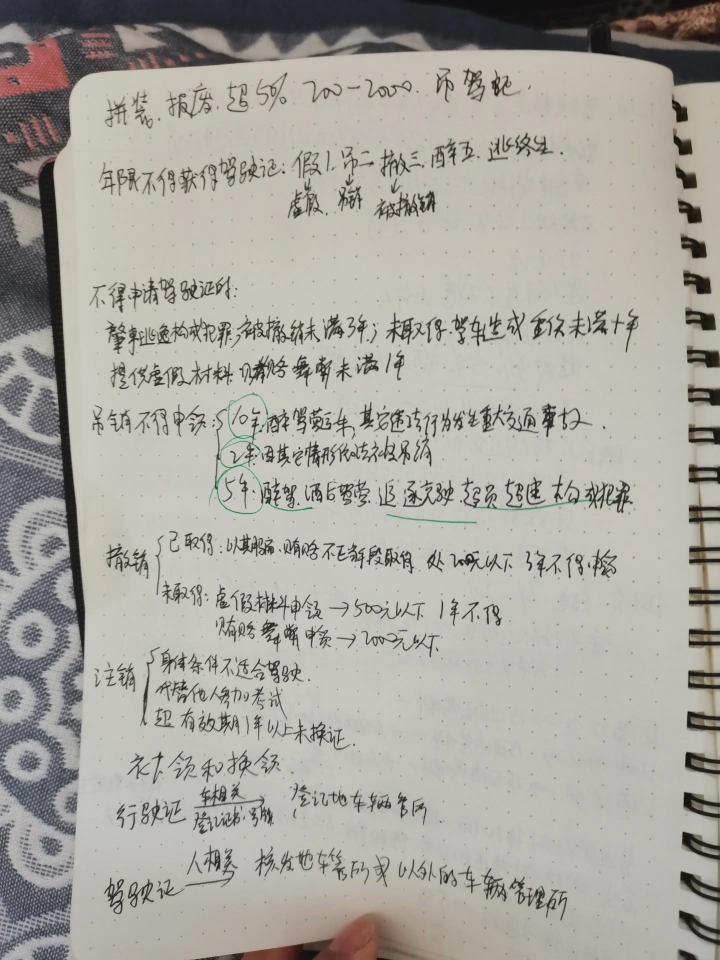 拼装、报废、超50% 200-2000 吊驾驶
年限不得获得驾驶证: 假1. 吊二 撤三. 醉五. 逃终生.
虚假 吊销 被撤销
不得申请驾驶证的:
肇事逃逸构成犯罪; 被撤销未满3年; 未取得驾车造成重伤未满十年
提供虚假材料 贿赂舞弊未满1年
吊销不得申领: 10年 醉驾营运车, 其它违法行为发生重大交通事故.
2年 因其它情形依法被吊销
5年 醉驾, 酒后驾营, 追逐竞驶 超员 超速 构成犯罪
撤销 已取得: 以欺骗、贿赂不正当手段取得 处2000元以下 3年不得申领
未取得: 虚假材料申领 → 500元以下 1年不得
贿赂 舞弊申领 → 2000元以下
注销 身体条件不适合驾驶.
代替他人参加考试
超有效期1年以上未换证.
补领和换领
行驶证 车相关 登记证书、号牌 → 登记地车辆管所
驾驶证 人相关 → 核发地车管所或以外的车辆管理所